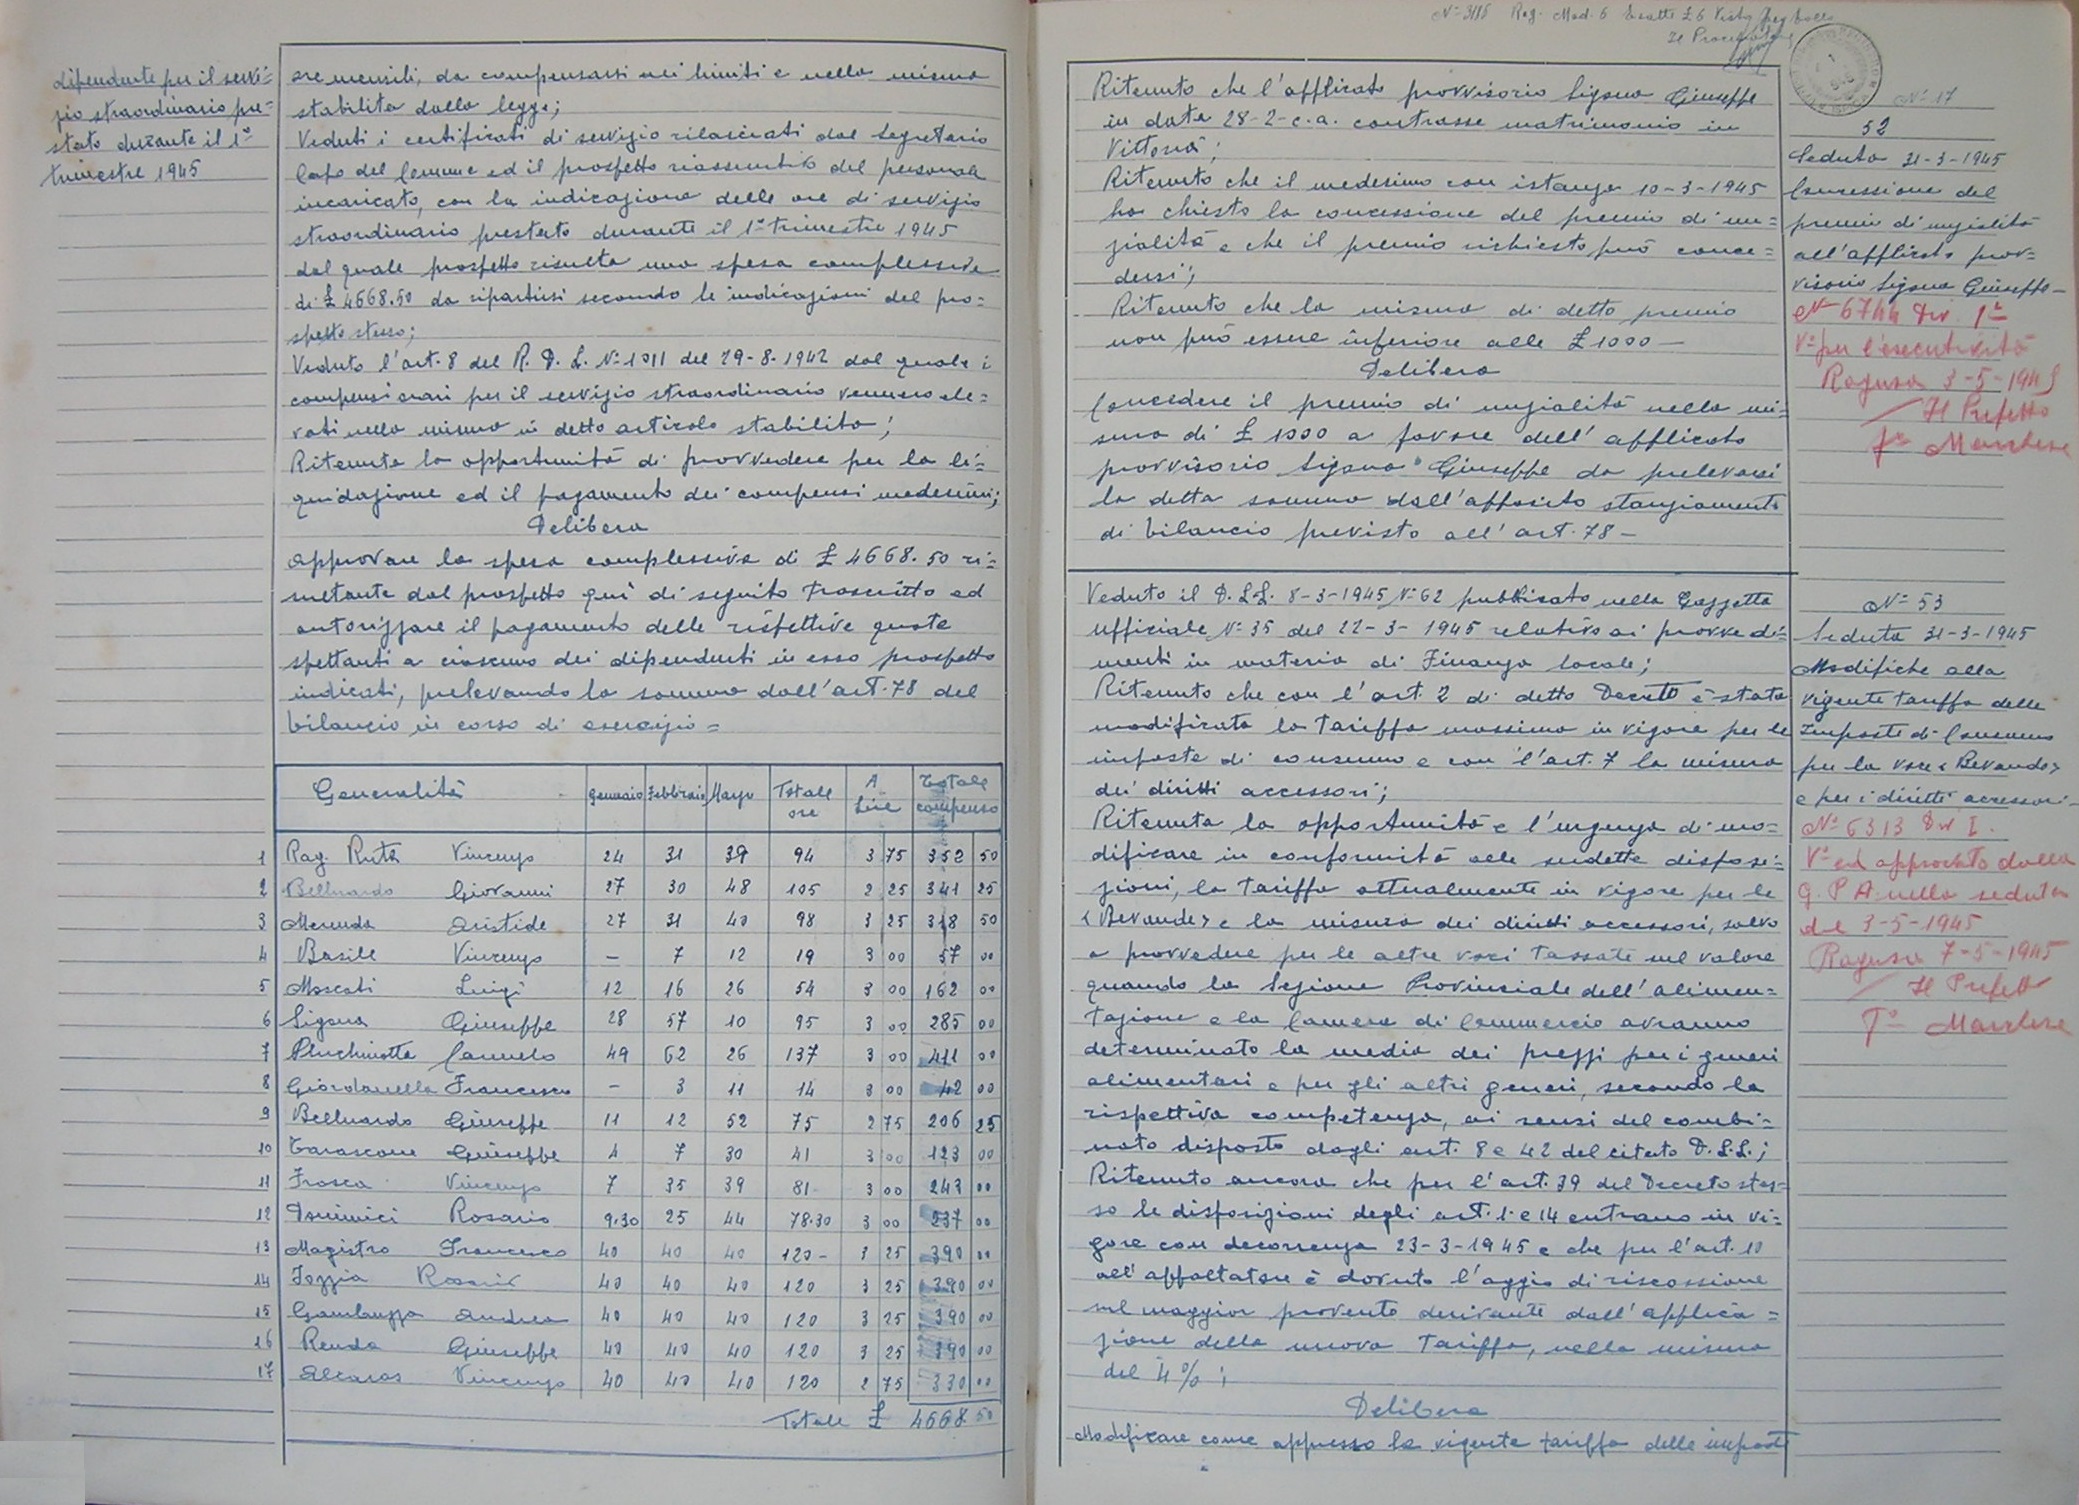 dipendente per il servi=
zio straordinario pre=
stato durante il 1°
trimestre 1945
ore mensili, da compensarsi nei limiti e nella misura
stabilita dalla legge;
Veduti i certificati di servizio rilasciati dal Segretario
Capo del Comune ed il prospetto riassuntivo del personale
incaricato, con la indicazione delle ore di servizio
straordinario prestato durante il 1° trimestre 1945
dal quale prospetto risulta una spesa complessiva
di £ 4668.50 da ripartirsi secondo le indicazioni del pro=
spetto stesso;
Veduto l'art. 8 del R. D. L. N° 1011 del 29-8-1942 dal quale i
compensi orari per il servizio straordinario vennero ele=
vati nella misura in detto articolo stabilita;
Ritenuta la opportunità di provvedere per la li=
quidazione ed il pagamento dei compensi medesimi;
Delibera
approvare la spesa complessiva di £ 4668.50 ri=
sultante dal prospetto qui di seguito trascritto ed
autorizzare il pagamento delle rispettive quote
spettanti a ciascuno dei dipendenti in esso prospetto
indicati, prelevando la somma dall'art. 78 del
bilancio in corso di esercizio=
Generalità Gennaio Febbraio Marzo Totale ore A Lire Totale compenso
1 Rag. Ruta Vincenzo 24 31 39 94 3 75 352 50
2 Belluardo Giovanni 27 30 48 105 2 25 341 25
3 Merenda Aristide 27 31 40 98 3 25 318 50
4 Basile Vincenzo – 7 12 19 3 00 57 00
5 Moscati Luigi 12 16 26 54 3 00 162 00
6 Sigona Giuseppe 28 57 10 95 3 00 285 00
7 Pluchinotta Carmelo 49 62 26 137 3 00 411 00
8 Giordanella Francesco – 3 11 14 3 00 42 00
9 Belluardo Giuseppe 11 12 52 75 2 75 206 25
10 Tarascone Giuseppe 4 7 30 41 3 00 123 00
11 Frasca Vincenzo 7 35 39 81 3 00 243 00
12 Rosario 9.30 25 44 78.30 3 00 237 00
13 Magistro Francesco 40 40 40 120- 3 25 390 00
14 Iozzia Rosario 40 40 40 120 3 25 390 00
15 Gambuzza Andrea 40 40 40 120 3 25 390 00
16 Renda Giuseppe 40 40 40 120 3 25 390 00
17 Alcaras Vincenzo 40 40 40 120 2 75 330 00
Totale £ 4668.50
Reg. Mod. 6 Esatte £ 6
Il Procuratore
Ritenuto che l'applicato provvisorio Sigona Giuseppe
in data 28-2-c.a. contrasse matrimonio in
Vittoria;
Ritenuto che il medesimo con istanza 10-3-1945
ha chiesto la concessione del premio di nu=
zialità e che il premio richiesto può conce=
dersi;
Ritenuto che la misura di detto premio
non può essere inferiore alle £ 1000 —
Delibera
Concedere il premio di nuzialità nella mi=
sura di £ 1000 a favore dell'applicato
provvisorio Sigona Giuseppe da prelevarsi
la detta somma dall'apposito stanziamento
di bilancio previsto all'art. 78 —
N° 17
52
Seduta 31-3-1945
Concessione del
premio di nuzialità
all'applicato prov=
visorio Sigona Giuseppe—
N° 6744 Div. 1ª
V° per l'esecutività
Ragusa 3-5-1945
Il Prefetto
F° Marchese
Veduto il D.L.L. 8-3-1945 N° 62 pubblicato nella Gazzetta
Ufficiale N° 35 del 22-3-1945 relativo ai provvedi=
menti in materia di Finanza locale;
Ritenuto che con l'art. 2 di detto Decreto è stata
modificata la tariffa massima in vigore per le
imposte di consumo e con l'art. 7 la misura
dei diritti accessori;
Ritenuta la opportunità e l'urgenza di mo=
dificare in conformità alle sudette disposi=
zioni, la tariffa attualmente in vigore per le
<Bevande> e la misura dei diritti accessori, salvo
a provvedere per le altre voci tassate sul valore
quando la Sezione Provinciale dell'alimen=
tazione e la Camera di Commercio avranno
determinato la media dei prezzi per i generi
alimentari e per gli altri generi, secondo la
rispettiva competenza, ai sensi del combi=
nato disposto dagli art. 8 e 42 del citato D.L.L.;
Ritenuto ancora che per l'art. 39 del Decreto stes=
so le disposizioni degli art. 1 e 14 entrano in vi=
gore con decorrenza 23-3-1945 e che per l'art. 10
all'appaltatore è dovuto l'aggio di riscossione
sul maggior provento derivante dall'applica=
zione della nuova tariffa, nella misura
del 4%;
Delibera
Modificare come appresso la vigente tariffa delle imposte
N° 53
Seduta 31-3-1945
Modifiche alla
vigente tariffa delle
Imposte di Consumo
per la voce <Bevande>
e per i diritti accessori—
N° 6313 Div I.
V° ed approvato dalla
G. P. A. nella seduta
del 3-5-1945
Ragusa 7-5-1945
Il Prefetto
F° Marchese